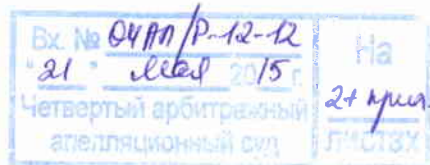 Вх. № 04АП/Р-12-12
"21" мая 2015 г.
Четвертый арбитражный
апелляционный суд
На
2+ прил.
листах